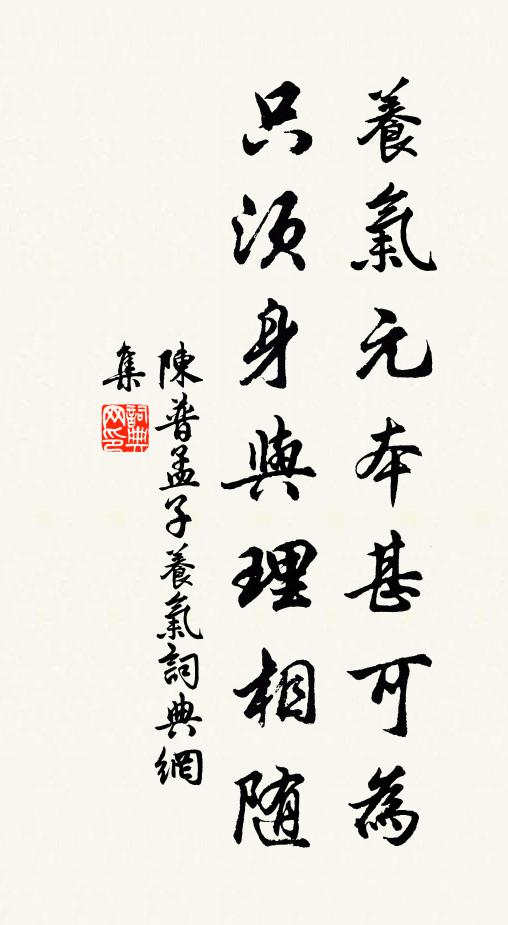 養氣元本甚可為
只須身與理相随
陳普孟子養氣詞典網
集
詞典网印